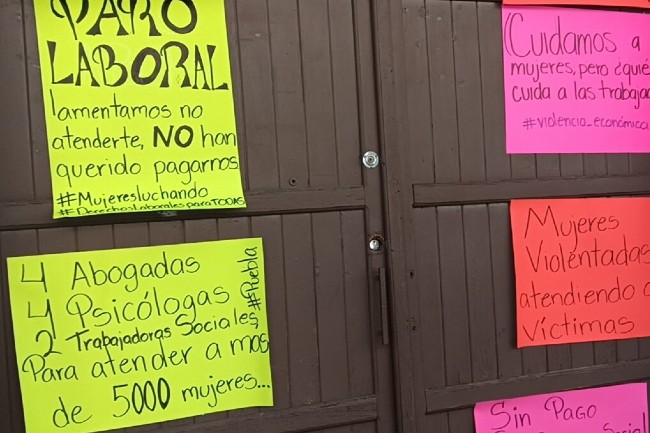 PARO
LABORAL
lamentamos no
atenderte, NO han
querido pagarnos
#Mujeresluchando
#DerechosLaboralesparaTODAS
4 Abogadas
4 Psicólogas
2 Trabajadoras Sociales
Para atender a mas
de 5000 mujeres...
#Puebla
¿Cuidamos a
mujeres, pero ¿quié
cuida a las trabajad
#violencia_económica
Mujeres
Violentadas
atendiendo a
víctimas
Sin Pago